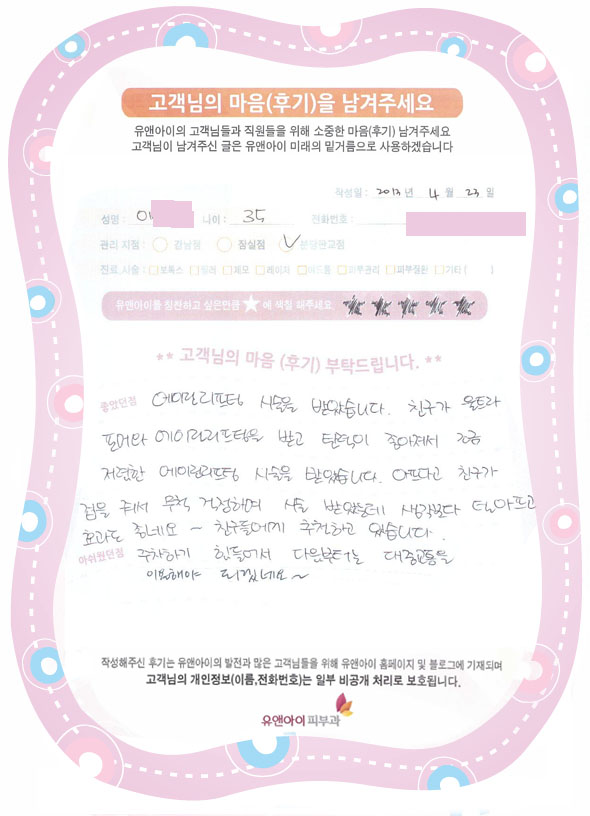 고객님의 마음(후기)을 남겨주세요
유앤아이의 고객님들과 직원들을 위해 소중한 마음(후기) 남겨주세요
고객님이 남겨주신 글은 유앤아이 미래의 밑거름으로 사용하겠습니다
작성일 : 2013 년 4 월 23 일
성명 : 나이 : 35 전화번호 :
관리 지점 : 강남점 잠실점 분당판교점
진료,시술 : 보톡스 필러 제모 레이저 여드름 피부관리 피부질환 기타 ( )
유앤아이를 칭찬하고 싶은만큼 ★ 에 색칠 해주세요.
** 고객님의 마음 (후기) 부탁드립니다. **
좋았던점 에이린리프팅 시술을 받았습니다. 친구가 울트라
포머와 에이린리프팅을 받고 탄력이 좋아져서 조금
저렴한 에이린리프팅 시술을 받았습니다. 아프다고 친구가
겁을 줘서 무척 걱정하며 시술 받았는데 생각보다 덜아프고
효과도 좋네요 ~ 친구들에게 추천하고 있습니다.
아쉬웠던점 주차하기 힘들어서 다음부터는 대중교통을
이용해야 되겠네요~
작성해주신 후기는 유앤아이의 발전과 많은 고객님들을 위해 유앤아이 홈페이지 및 블로그에 기재되며
고객님의 개인정보(이름,전화번호)는 일부 비공개 처리로 보호됩니다.
유앤아이피부과